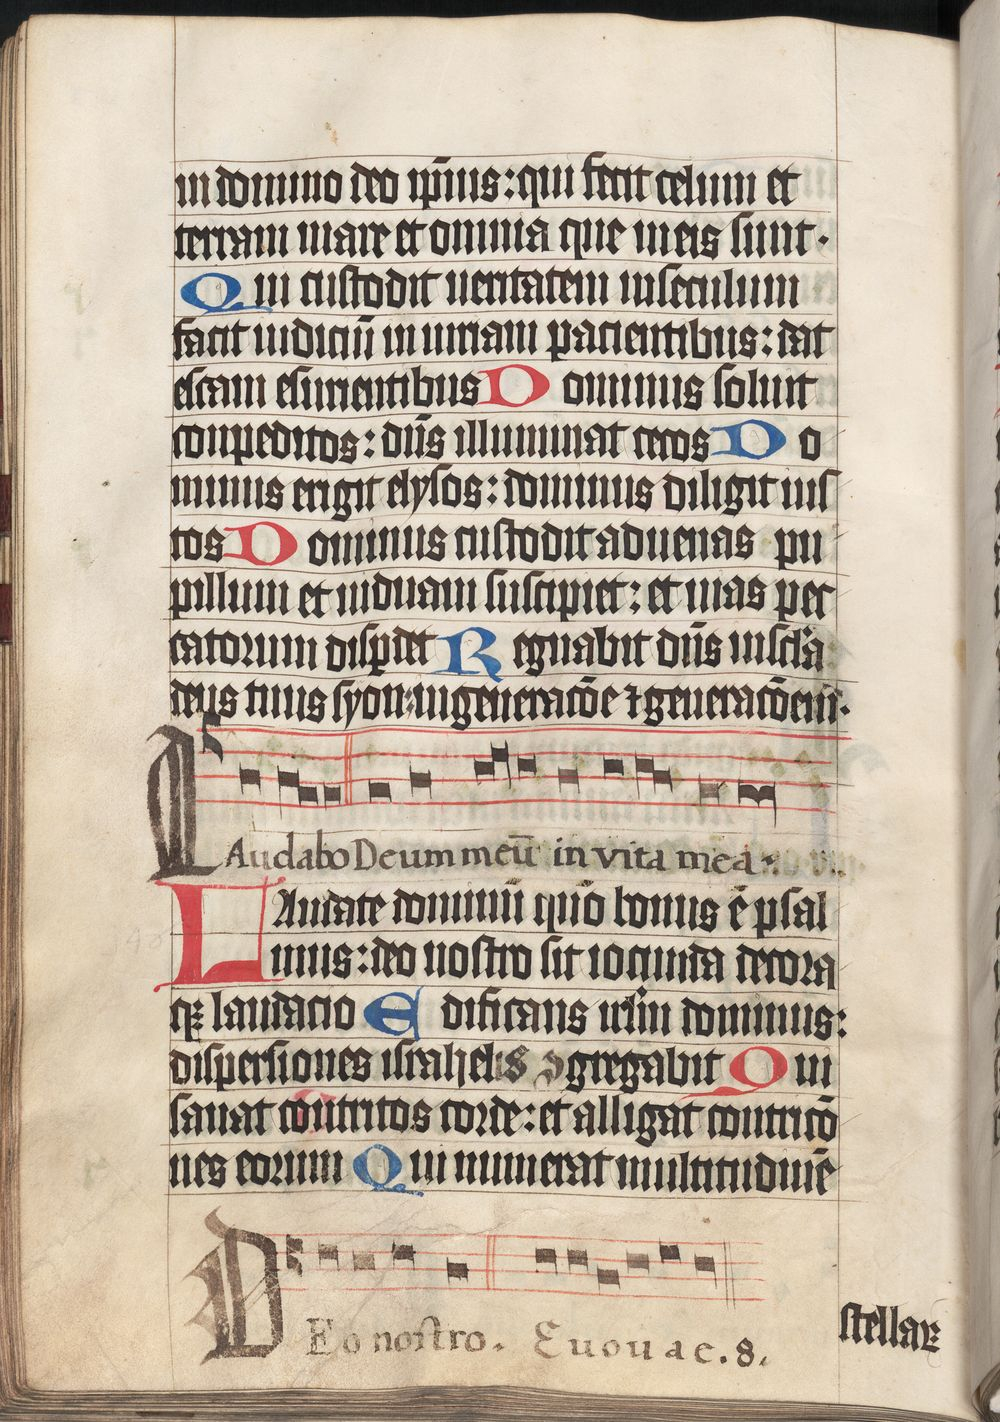 in domino deo ip̄ius: qui fecit celum et
terram mare et omnia que in eis sunt.
Qui custodit veritatem in seculum
facit iudiciū iniuriam pacientibus: dat
escam esurientibus Dominus soluit
conpeditos: dn̄s illuminat cecos Do
minus erigit elysos: dominus diligit ius
tos Dominus custodit aduenas pu
pillum et viduam suscipiet: et vias pec
catorum disp̄det Regnabit dn̄s in sc̄la
deus tuus syon: in generacōe ⁊ generacōem.
LAudabo Deum meū in vita mea.
LAudate dominū qūo bonus ē psal
mus: deo nostro sit iocunda decora
qꝫ laudacio Edificans irl̄m dominus:
dispersiones israhelis ꝯgregabit Qui
sanat contritos corde: et alligat contricō
nes eorum Qui numerat multitudinē
DEo nostro. Euouae. 8.
stellaꝝ